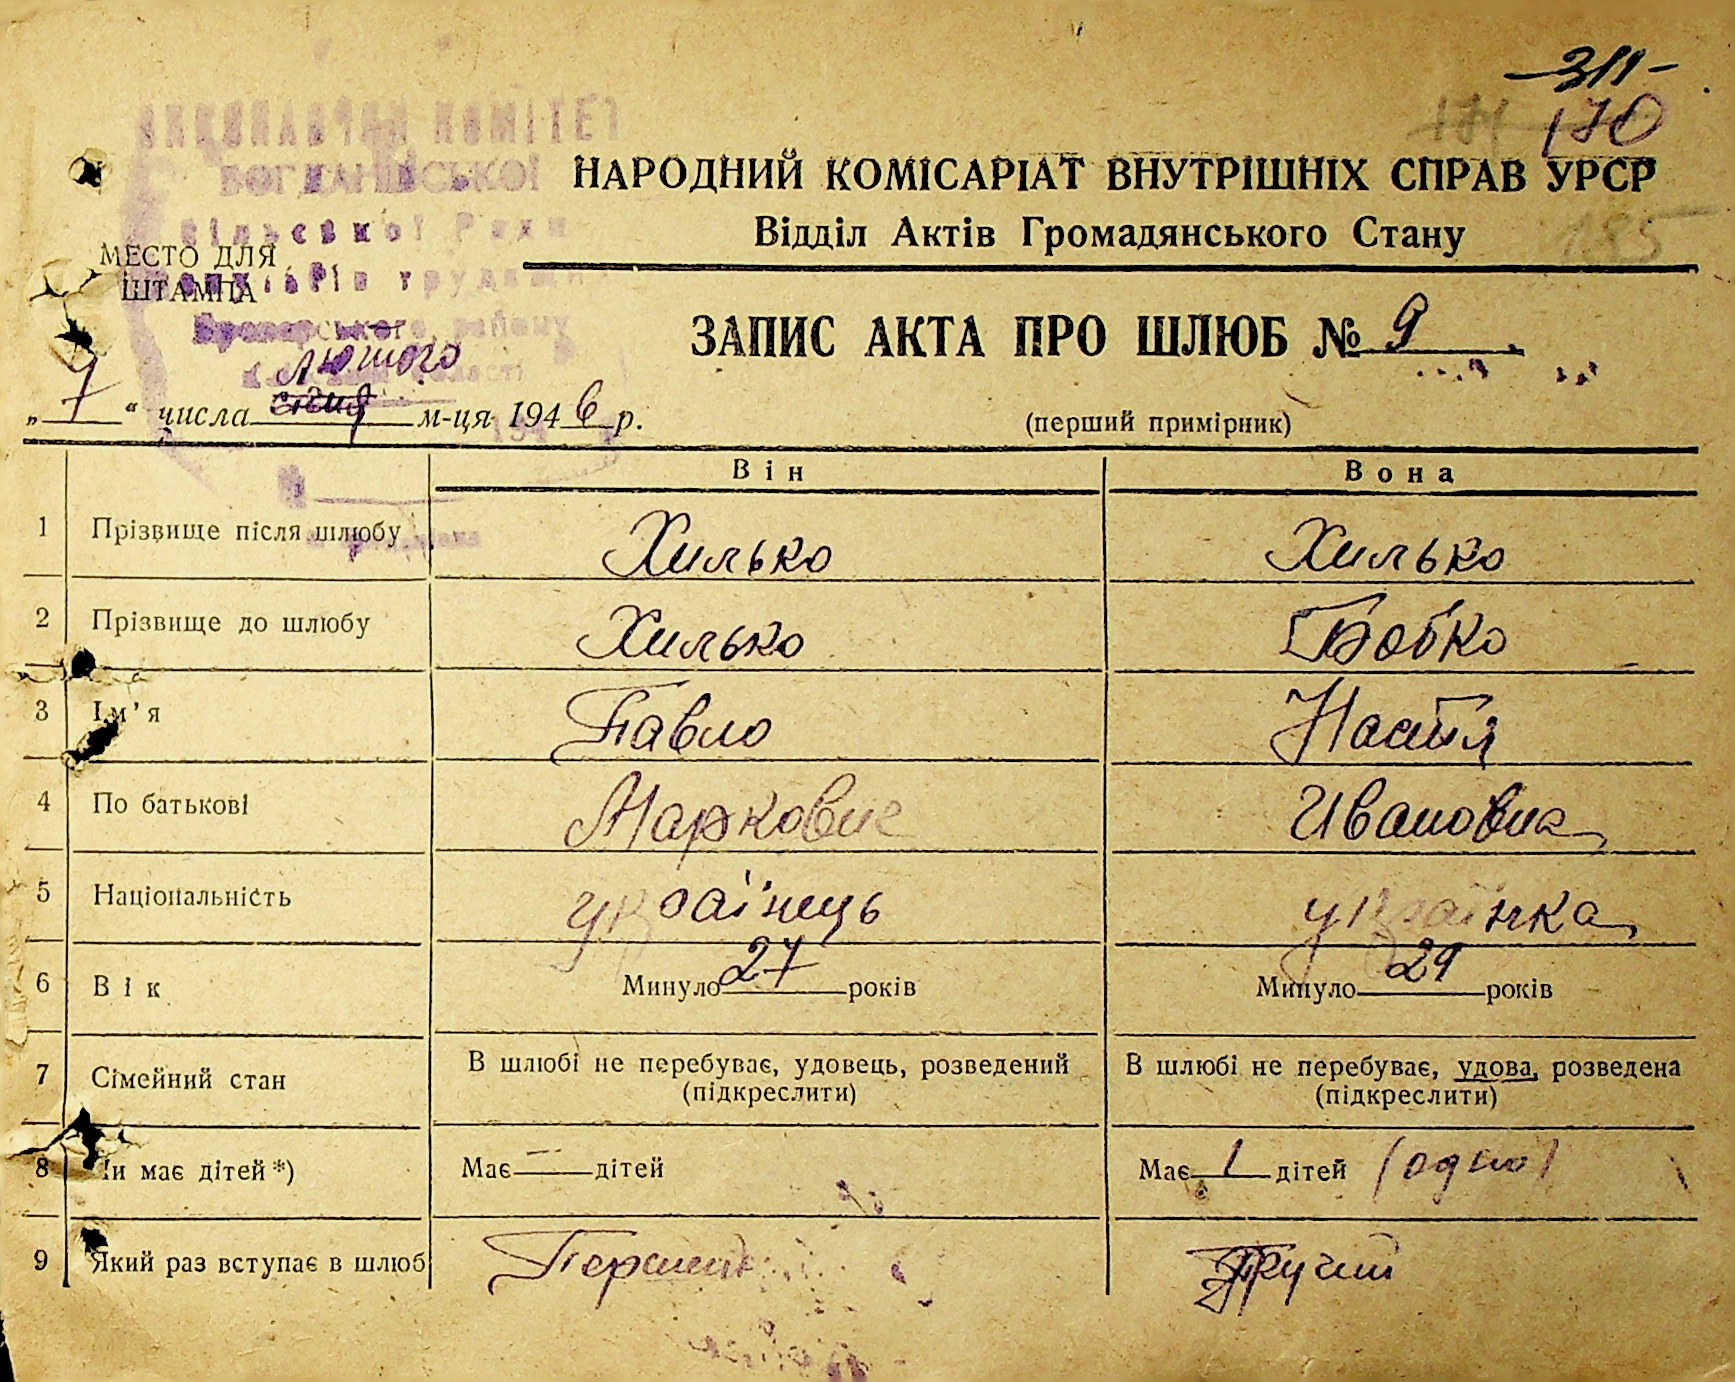 -311-
171 170
ВИКОНАВЧИЙ КОМІТЕТ
БОГДАНІВСЬКОЇ
Сільської Ради
депутатів трудящих
Броварського району
області
МЕСТО ДЛЯ
ШТАМПА
НАРОДНИЙ КОМІСАРІАТ ВНУТРІШНІХ СПРАВ УРСР
Відділ Актів Громадянського Стану
185
ЗАПИС АКТА ПРО ШЛЮБ № 9
лютого
„ 7 “ числа січня м-ця 1946 р.
(перший примірник)
Він Вона
1 Прізвище після шлюбу Хилько Хилько
2 Прізвище до шлюбу Хилько Бобко
3 Ім'я Павло Настя
4 По батькові Маркович Ивановна
5 Національність українець українка
6 Вік Минуло 27 років Минуло 29 років
7 Сімейний стан В шлюбі не перебуває, удовець, розведений (підкреслити) В шлюбі не перебуває, удова, розведена (підкреслити)
8 Чи має дітей *) Має — дітей Має 1 дітей (одно)
9 Який раз вступає в шлюб Перший Другий